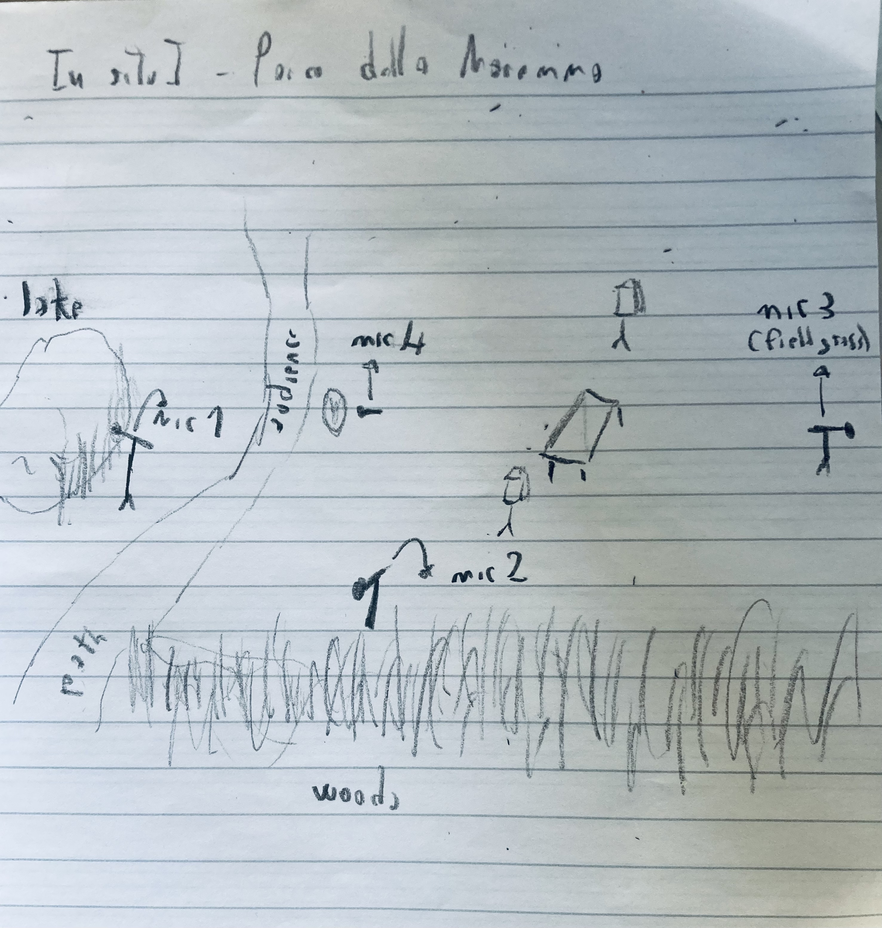 In situ I - Parco della Maremma
lake
mic 4
mic 3
(field grass)
audience
mic 1
mic 2
path
woods